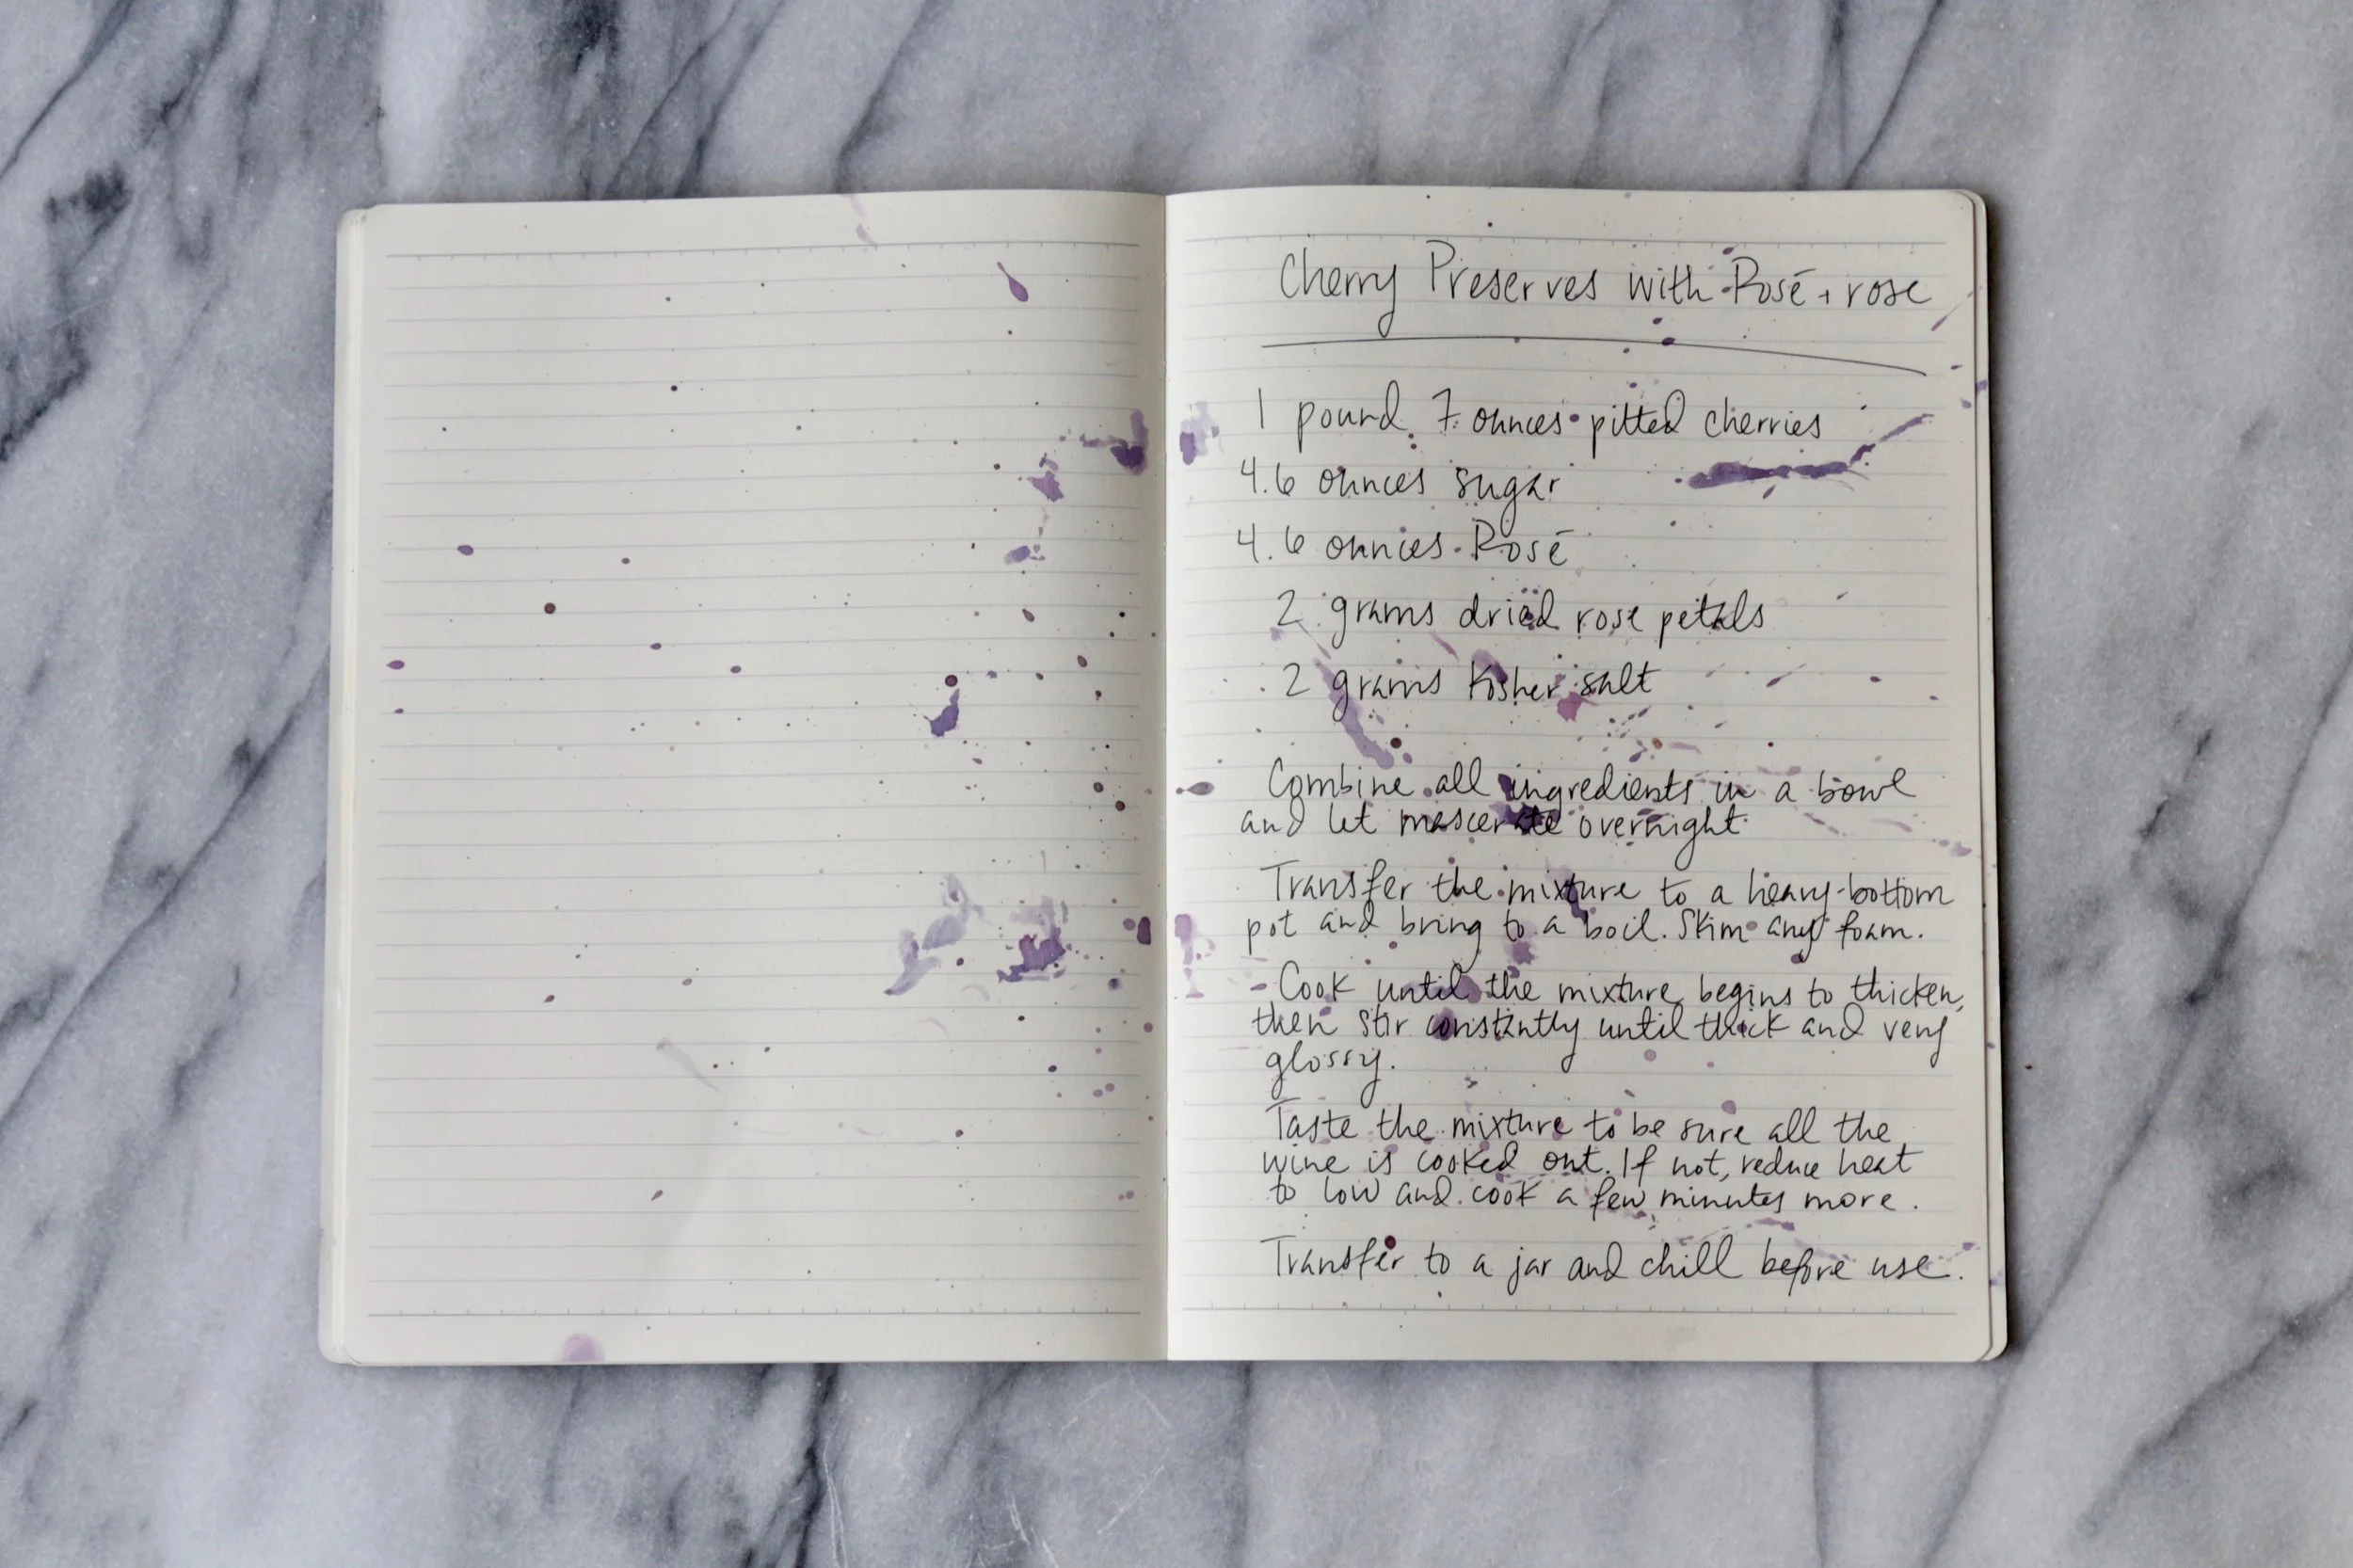 Cherry Preserves with Rosé + rose
1 pound 7 ounces pitted cherries
4.6 ounces sugar
4.6 ounces Rosé
2 grams dried rose petals
2 grams Kosher salt
Combine all ingredients in a bowl
and let mascerate overnight
Transfer the mixture to a heavy-bottom
pot and bring to a boil. Skim any foam.
Cook until the mixture begins to thicken,
then stir constantly until thick and very
glossy.
Taste the mixture to be sure all the
wine is cooked out. If not, reduce heat
to low and cook a few minutes more.
Transfer to a jar and chill before use.